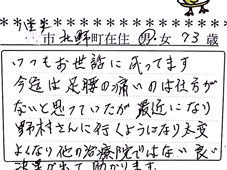 市 北野町在住 男・女 73歳
いつもお世話に成ってます
今迄は足腰の痛いのは仕方が
ないと思っていたが最近になり
野木さんに行くようになり大変
よくなり他の治療院ではない良い
効果が出て助かります